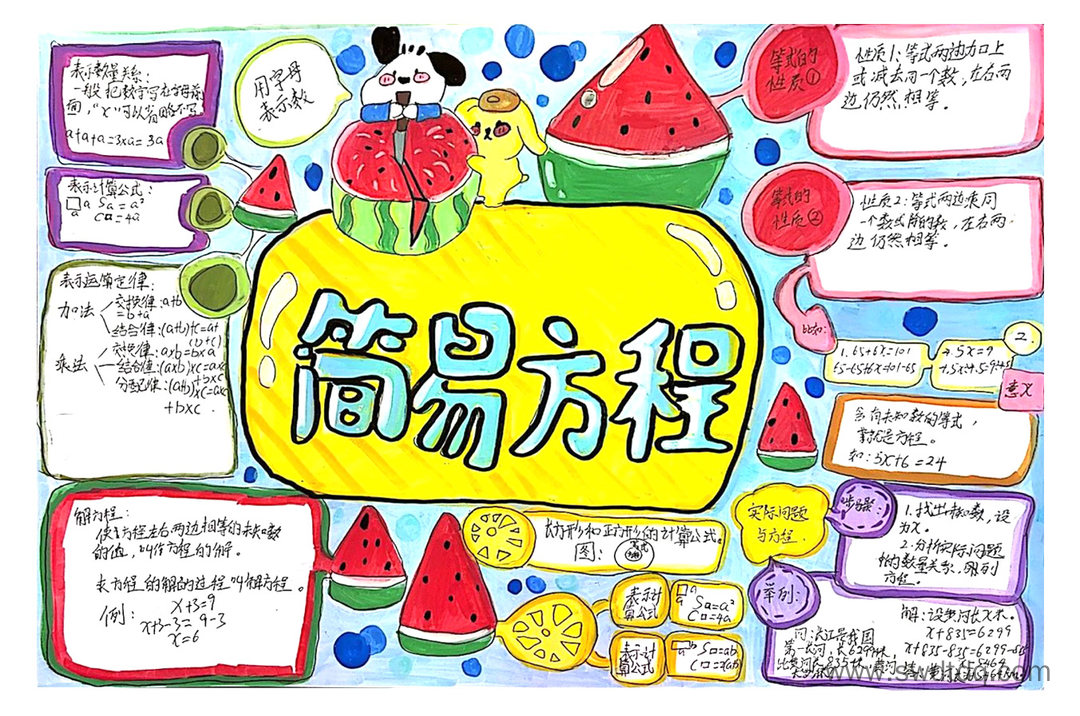 表示数量关系:
一般把数字写在字母前
面,"×"可以省略不写
a+a+a=3xa=3a
用字母
表示数
等式的
性质①
性质1:等式两边加上
或减去同一个数,左右两
边仍然相等。
表示计算公式:
a Sa=a²
a C□=4a
等式的
性质②
性质2:等式两边乘同
一个数或除的数,左右两
边仍然相等。
表示运算定律:
加法
交换律:a+b
=b+a
结合律:(a+b)+c=a+
(b+c)
乘法
交换律:axb=bxa
结合律:(axb)xc=ax
分配律:(a+b)xc=ac
+bxc
简易方程
比如:
1. 65+6x=101
65-65+6x=101-65
2.
4.5x=9
意义
含有未知数的等式,
就是方程。
如:5x+6=24
解方程:
使方程左右两边相等的未知数
的值,叫作方程的解。
求方程的解的过程叫解方程。
例:
x+3=9
x+3-3=9-3
x=6
长方形和正方形的计算公式。
图:
表示计
算公式
a Sa=a²
a C□=4a
表示计
算公式
S□=ab
实际问题
与方程
步骤:
1.找出未知数,设
为X。
2.分析实际问题
中的数量关系,列
方程。
举例:
问:长江是我国
第一长河,长6299km,
解:设黄河长x米。
x+835=6299
x+835-835=6299-835
www.swdtdq.com